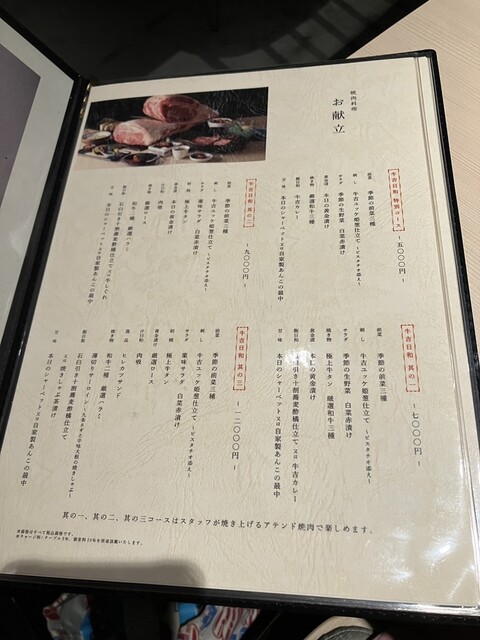 焼肉料理
お献立
牛吉日和 特別コース
～五〇〇〇円～
前菜 季節の前菜三種
刺し 牛吉ユッケ姫葱仕立て ～ピスタチオ添え～
サラダ 季節の生野菜 白菜赤漬け
黄金漬け 本日の黄金漬け
焼き物 厳選和牛三種
御食事 牛吉カレー
甘味 本日のシャーベット又は自家製あんこの最中
牛吉日和 其の二
～九〇〇〇円～
前菜 季節の前菜三種
刺し 牛吉ユッケ姫葱仕立て ～ピスタチオ添え～
サラダ 薬味サラダ 白菜赤漬け
極上牛タン
黄金漬け 本日の黄金漬け
肉吸
焼き物 厳選ロース
和牛二種 厳選ハラミ
御食事 石臼引き十割蕎麦酢橘仕立て 又は 牛しぐれ
甘味 本日のシャーベット又は自家製あんこの最中
牛吉日和 其の一
～七〇〇〇円～
前菜 季節の前菜三種
刺し 牛吉ユッケ姫葱仕立て ～ピスタチオ添え～
サラダ 季節の生野菜 白菜赤漬け
焼き物 極上牛タン 厳選和牛三種
黄金漬け 本日の黄金漬け
御食事 石臼引き十割蕎麦酢橘仕立て 又は 牛吉カレー
甘味 本日のシャーベット又は自家製あんこの最中
牛吉日和 其の三
～一二〇〇〇円～
前菜 季節の前菜三種
刺し 牛吉ユッケ姫葱仕立て ～ピスタチオ添え～
サラダ 薬味サラダ 白菜赤漬け
極上牛タン
黄金漬け 厳選ロース
肉吸
逸品 ヒレカツサンド
焼き物 和牛二種 厳選ハラミ
薄切りサーロイン
御食事 石臼引き十割蕎麦酢橘仕立て
又は 焼きしゃぶ茶漬け
甘味 本日のシャーベット又は自家製あんこの最中
其の一、其の二、其の三コースはスタッフが焼き上げるアテンド焼肉で楽しめます。
※価格はすべて税込価格です。